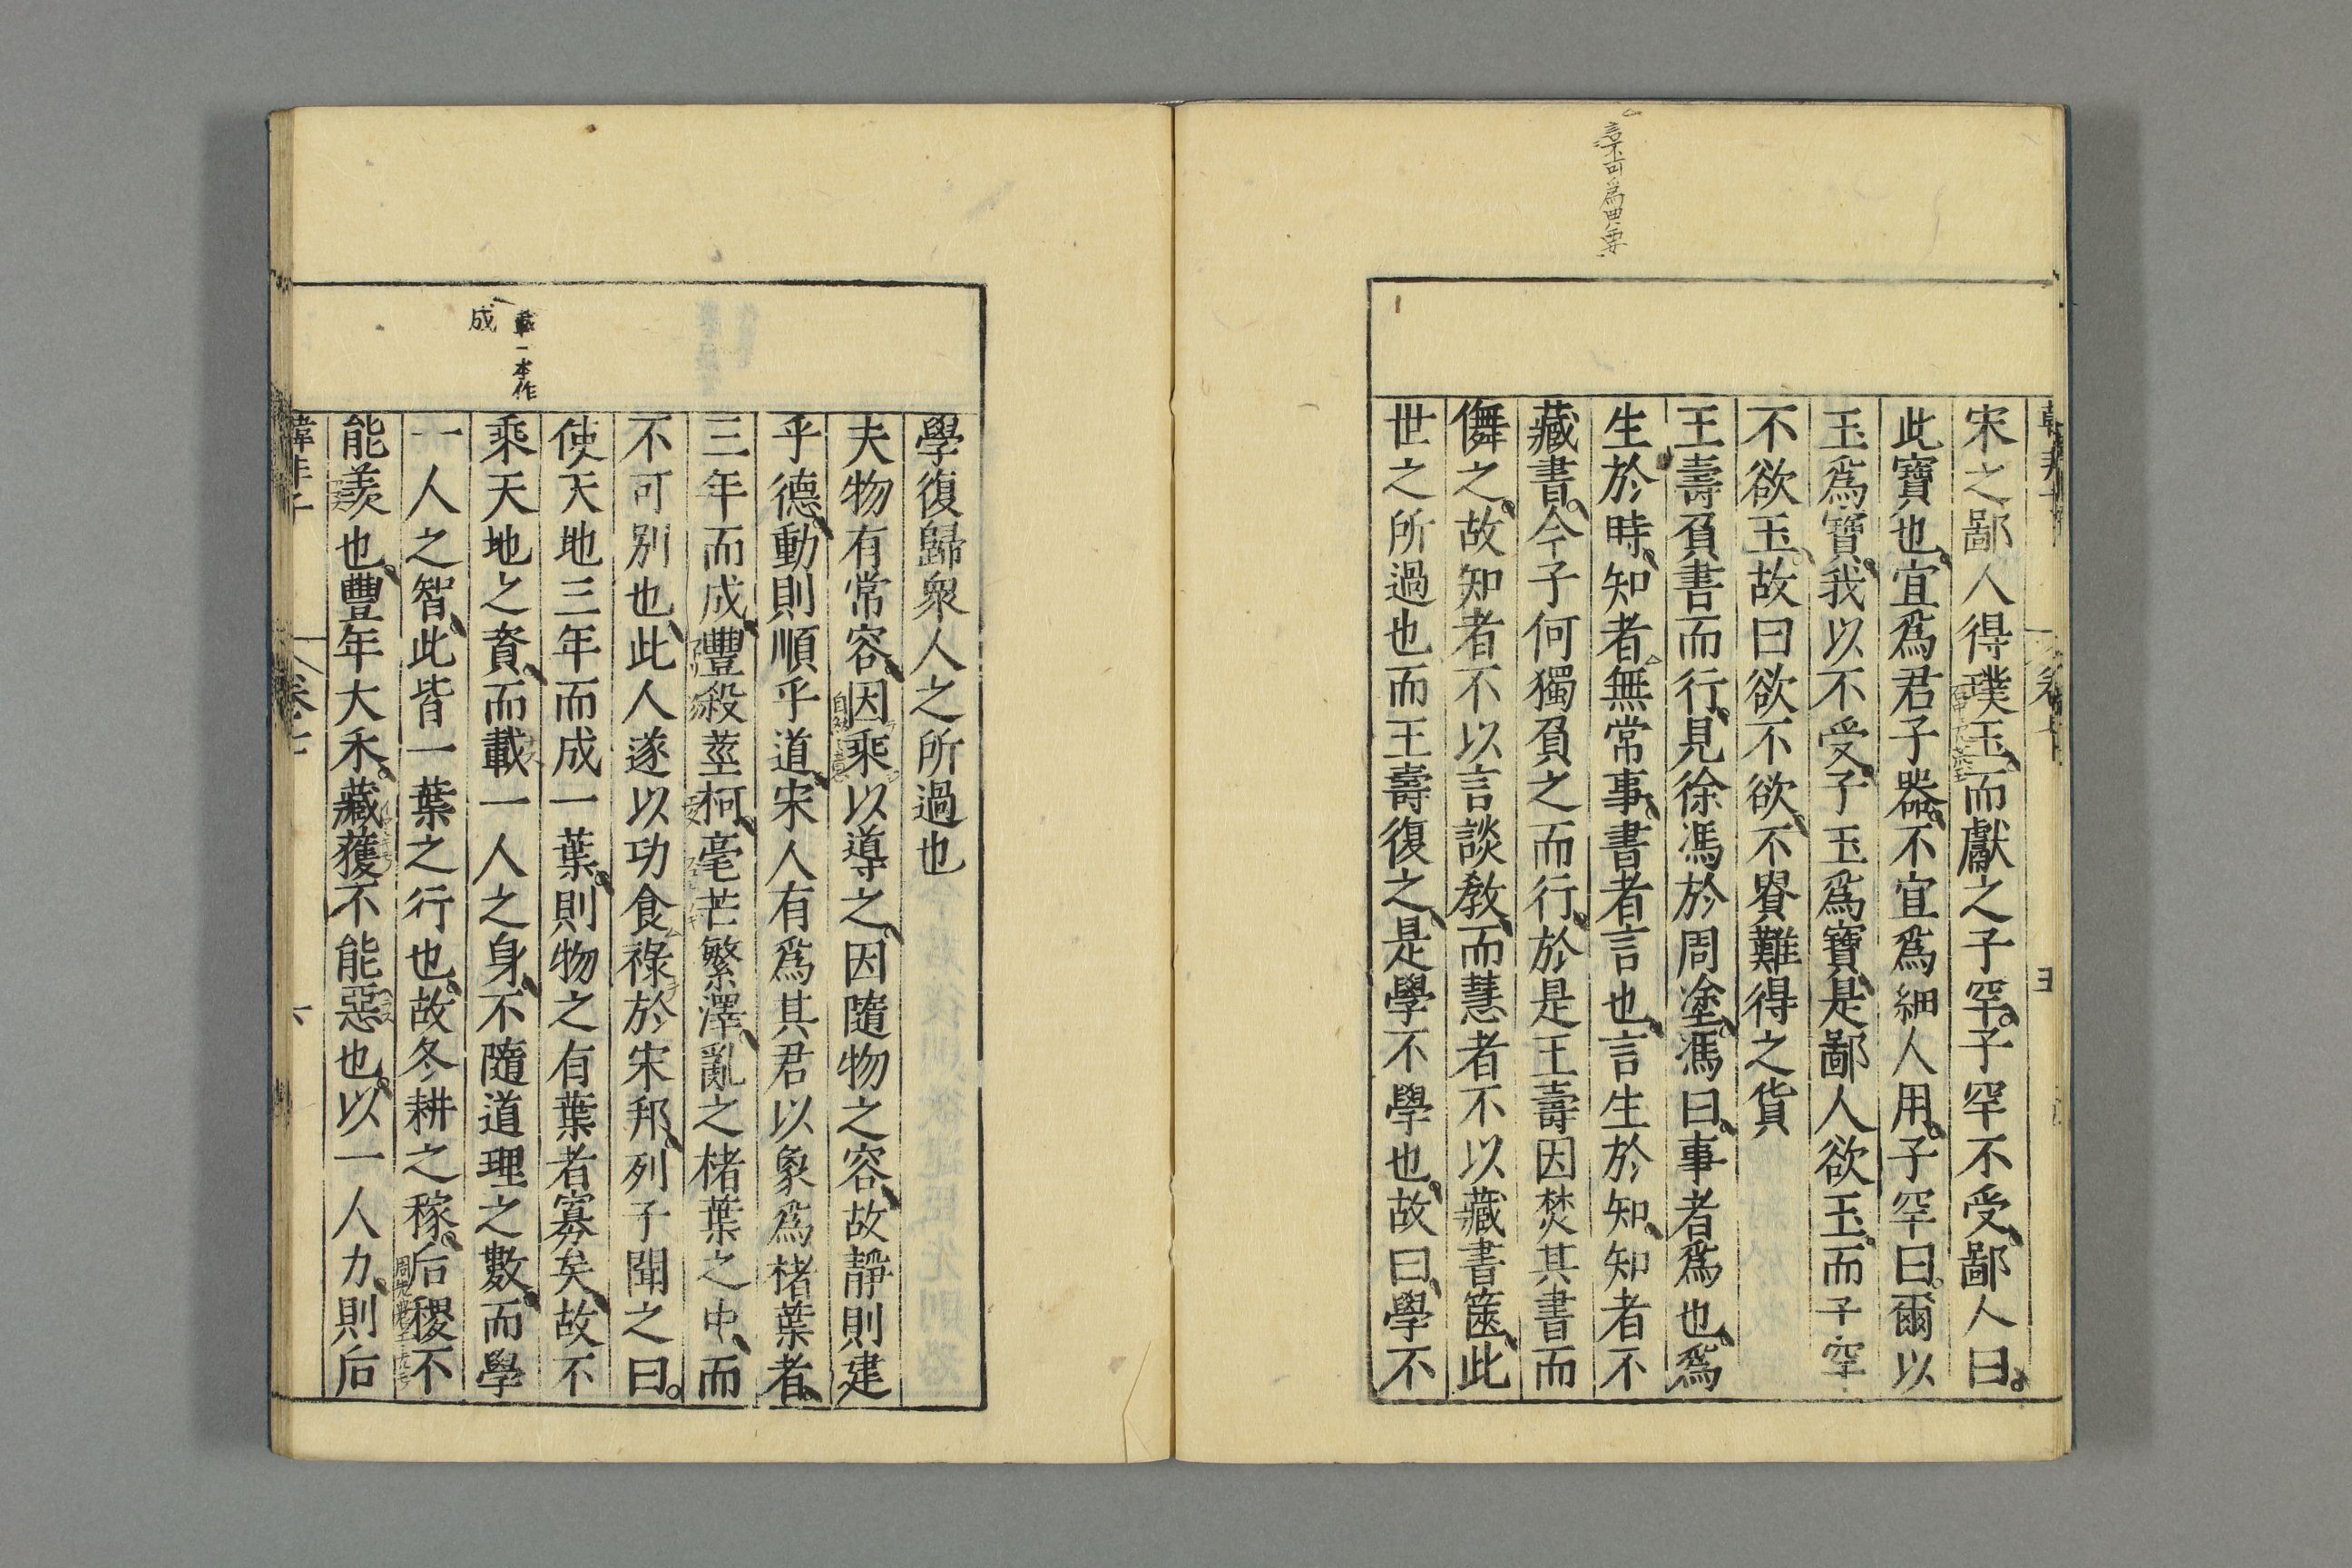 言不可為典要
宋之鄙人得璞玉而獻之子罕子罕不受鄙人曰
此寶也宜爲君子器不宜爲細人用子罕曰爾以
玉爲寶我以不受子玉爲寶是鄙人欲玉而子罕
不欲玉故曰欲不欲不貴難得之貨
王壽負書而行見徐馮於周塗馮曰事者爲也爲
生於時知者無常事書者言也言生於知知者不
藏書今子何獨負之而行於是王壽因焚其書而
儛之故知者不以言談教而慧者不以藏書篋此
世之所過也而王壽復之是學不學也故曰學不
學復歸衆人之所過也
夫物有常容因乘以導之因隨物之容故靜則建
乎德動則順乎道宋人有爲其君以象爲楮葉者
三年而成豐殺莖柯毫芒繁澤亂之楮葉之中而
不可別也此人遂以功食祿於宋邦列子聞之曰
使天地三年而成一葉則物之有葉者寡矣故不
載一本作
成
乘天地之資而載一人之身不隨道理之數而學
一人之智此皆一葉之行也故冬耕之稼后稷不
能羨也豐年大禾藏獲不能惡也以一人力則后
韓非子 卷七 六